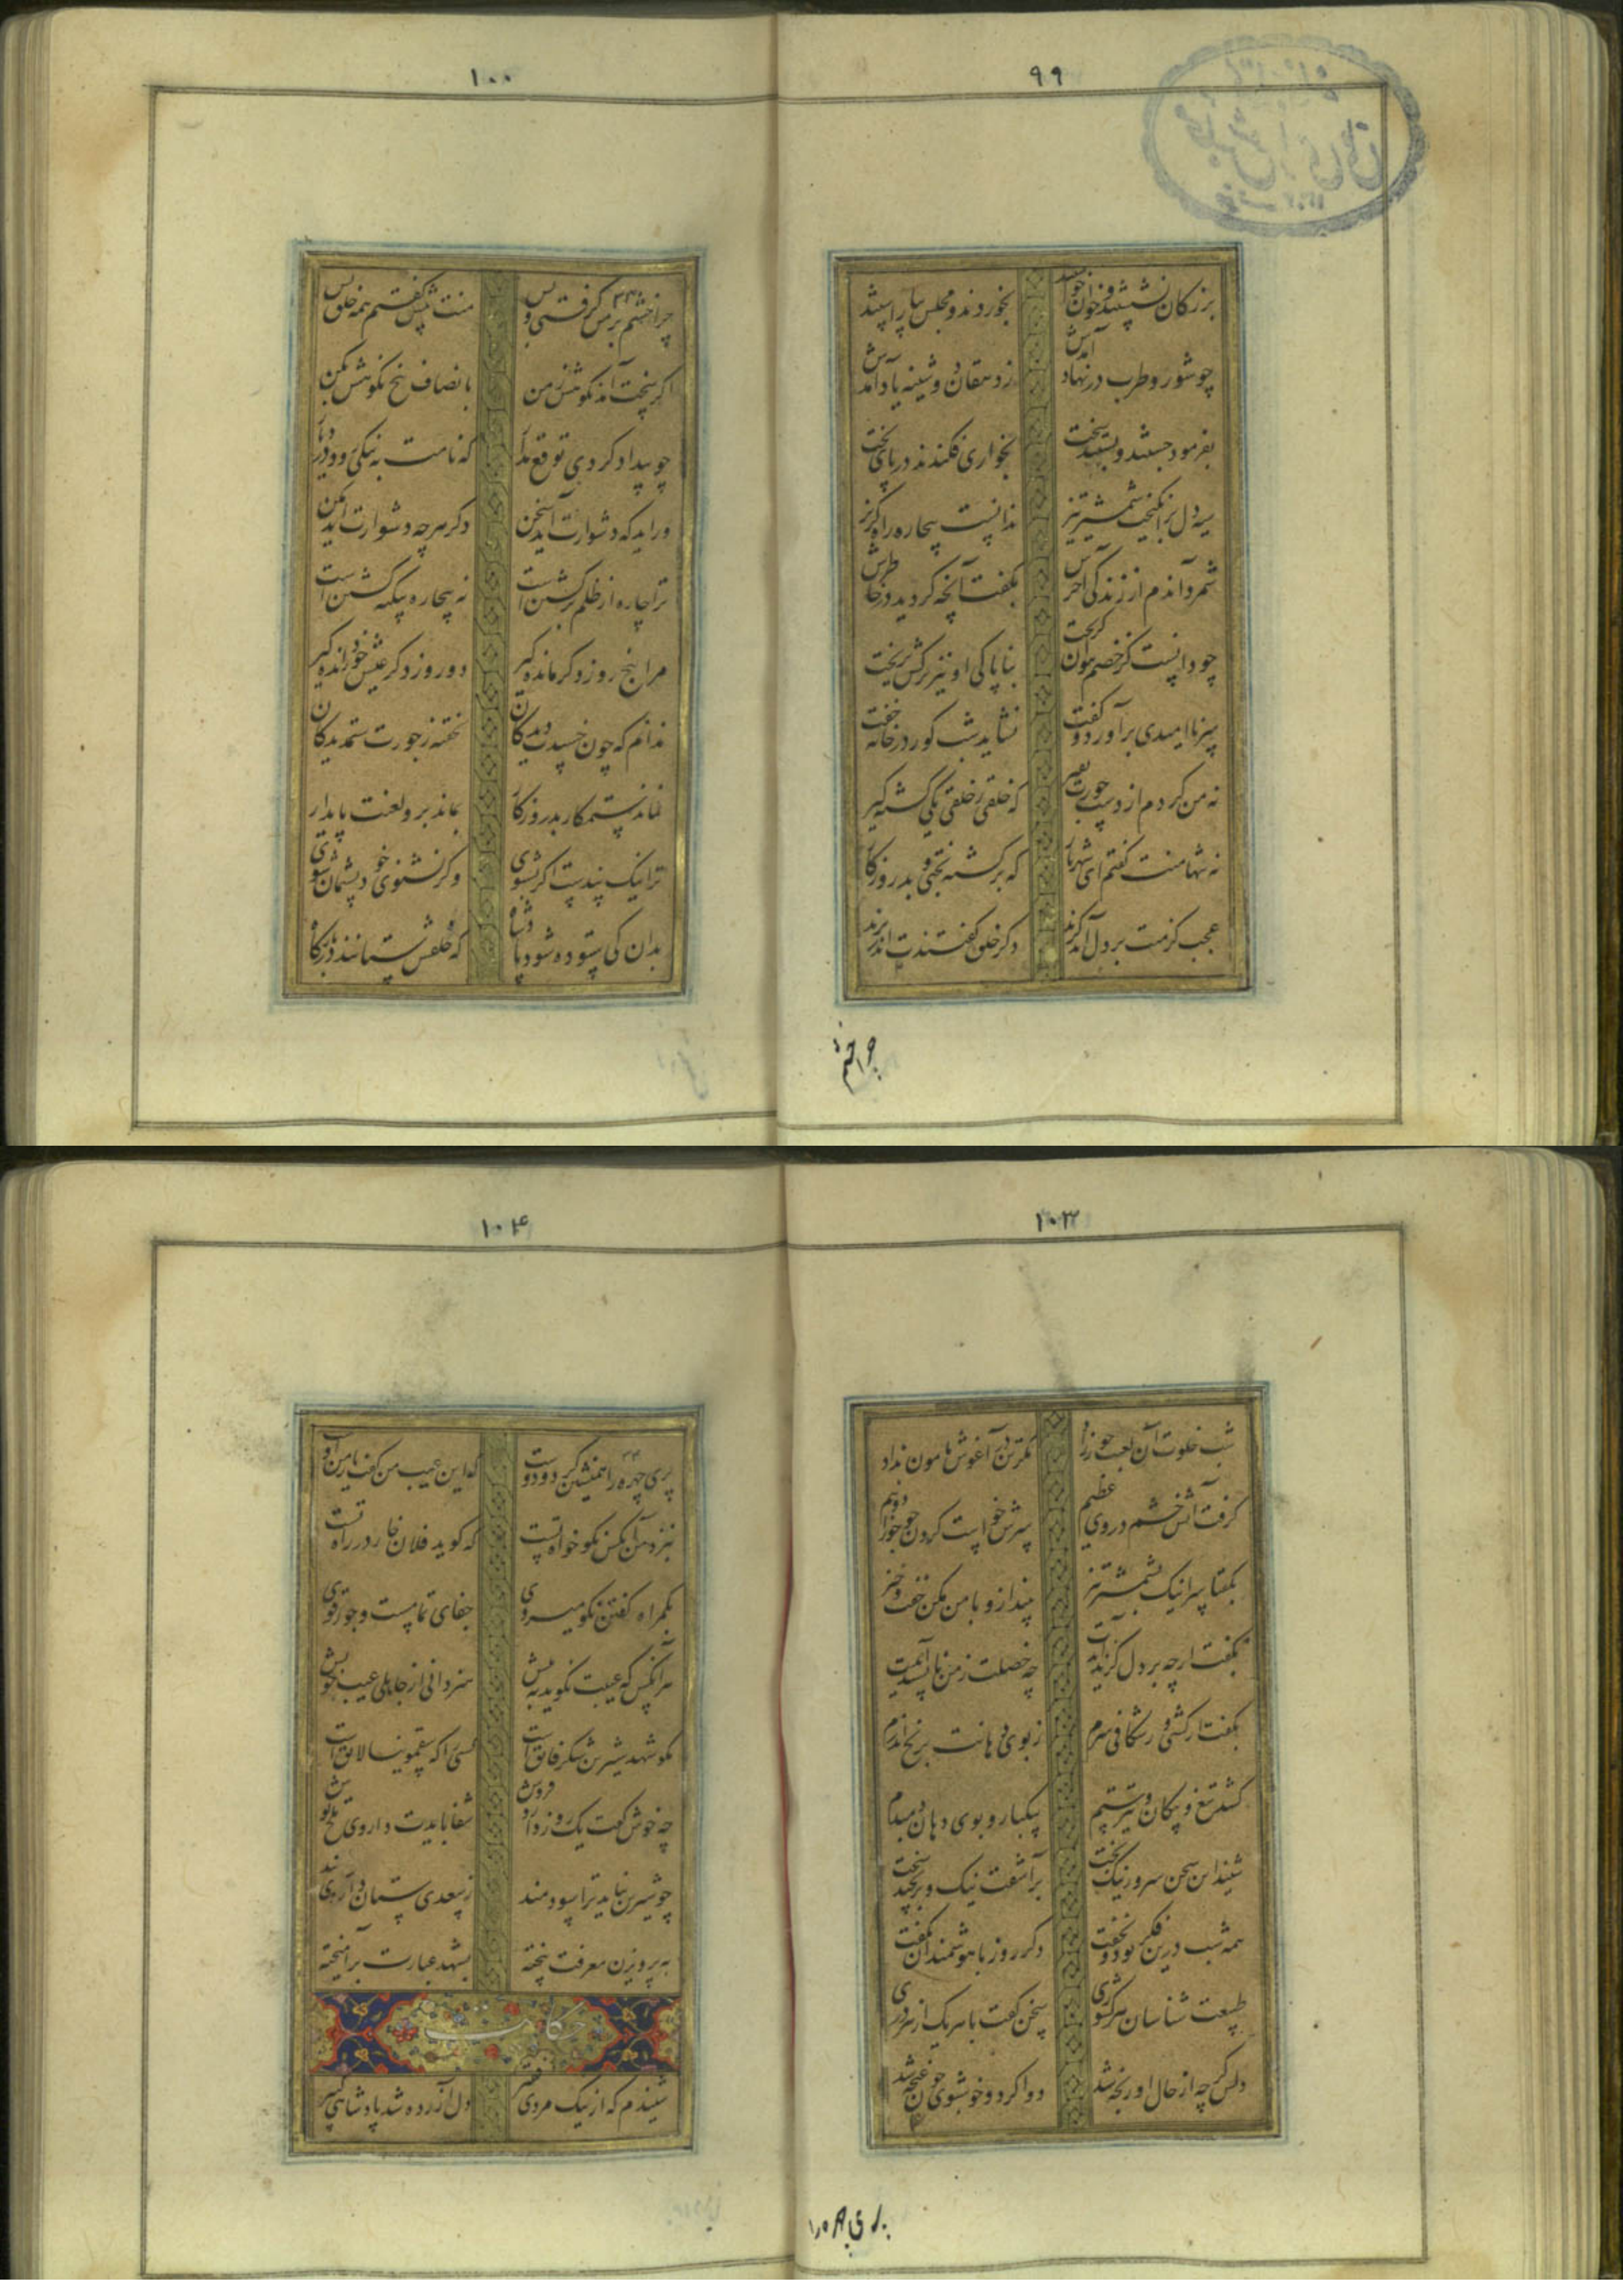 ۹۹
بزرگان نشستند و خوان خواستند
بخوردند و مجلس بیاراستند
چو شور و طرب در نهاد آمدش
ز دهقان دوشینه یاد آمدش
بفرمود جستند و بستند سخت
بخواری فکندند در پای تخت
سیه دل برآهیخت شمشیر تیز
ندانست بیچاره راه گریز
شمرد آندم از زندگی آخرش
بگفت آنچه گردید در خاطرش
چو دانست کز خصم نتوان گریخت
به ناپاکی او نیز ترکش بریخت
سر ناامیدی برآورد و گفت
نشاید شب گور در خانه خفت
نه من کردم از دست جورت نفیر
که خلقی ز خلقی یکی کشته گیر
نه تنها منت گفتم ای شهریار
که برگشته بختی و بد روزگار
عجب کز منت بر دل آمد گزند
دگر خلق گفتند ت اندر
چرا خشم
۱۰۰
چرا خشم بر من گرفتی و بس
منت پیش گفتم همه خلق پس
اگر سخت آمد نکوهش ز من
بانصاف بیخ نکوهش بکن
چو بیداد کردی توقع مدار
که نامت به نیکی رود در دیار
ور اید که دشوارت آید سخن
دگر هرچه دشوارت آید مکن
ترا چاره از ظلم برگشتن است
نه بیچاره بیگنه کشتن است
مرا پنج روز دگر مانده گیر
دو روز دگر عیش خوش رانده گیر
ندانم که چون خسپدت دیدگان
نخفته ز جورت ستمدیدگان
نماند ستمکار بد روزگار
بماند برو لعنت پایدار
ترا نیک پندست اگر بشنوی
وگر نشنوی خود پشیمان شوی
بدان کی ستوده شود پادشاه
که خلقش ستایند در بارگاه
۱۰۳
شب خلوت آن لعبت حورزاد
مگر تن در آغوش مامون نداد
گرفت آتش خشم در وی عظیم
سرش خواست کردن چو جوزا دو نیم
بگفتا سر اینک بشمشیر تیز
بینداز و با من مکن خفت و خیز
بگفت ار چه بر دل گزند آیدت
چه خصلت ز من ناپسند آیدت
بگفت ار کشی ور شکافی سرم
ز بوی دهانت برنج اندرم
کشد تیغ و پیکان و تیر ستم
بیکبار و بوی دهان دمبدم
شنید این سخن سرور نیک بخت
برآشفت نیک و برنجید سخت
همه شب درین فکر بود و نخفت
دگر روز با هوشمندان بگفت
طبیعت شناسان هر کشوری
سخن گفت با هر یک از هر دری
دلش گرچه از حال او رنجه شد
دوا کرد و خوشبوی چون غنچه شد
۱۰۴
پری چهره را همنشین کرد و دوست
که این عیب من گفت یار من اوست
بنزد من آنکس نکو خواه تست
که گوید فلان خار در راه تست
بگمراه گفتن نکو میروی
جفای تمامست و جور قوی
هر آنکس که عیبت نگوید به پیش
هنر دانی از جاهلی عیب خویش
مگو شهد شیرین شکر فایق است
کسی را که سقمونیا لایق است
چه خوش گفت یک روز دارو فروش
شفا بایدت داروی تلخ نوش
چو شیرین نیاید ترا سودمند
ز سعدی ستان داروی پند
به پرویزن معرفت بیخته
بشهد عبارت برآمیخته
حکایت
شنیدم که از نیک مردی فقیر
دل آزرده شد پادشاهی کبیر